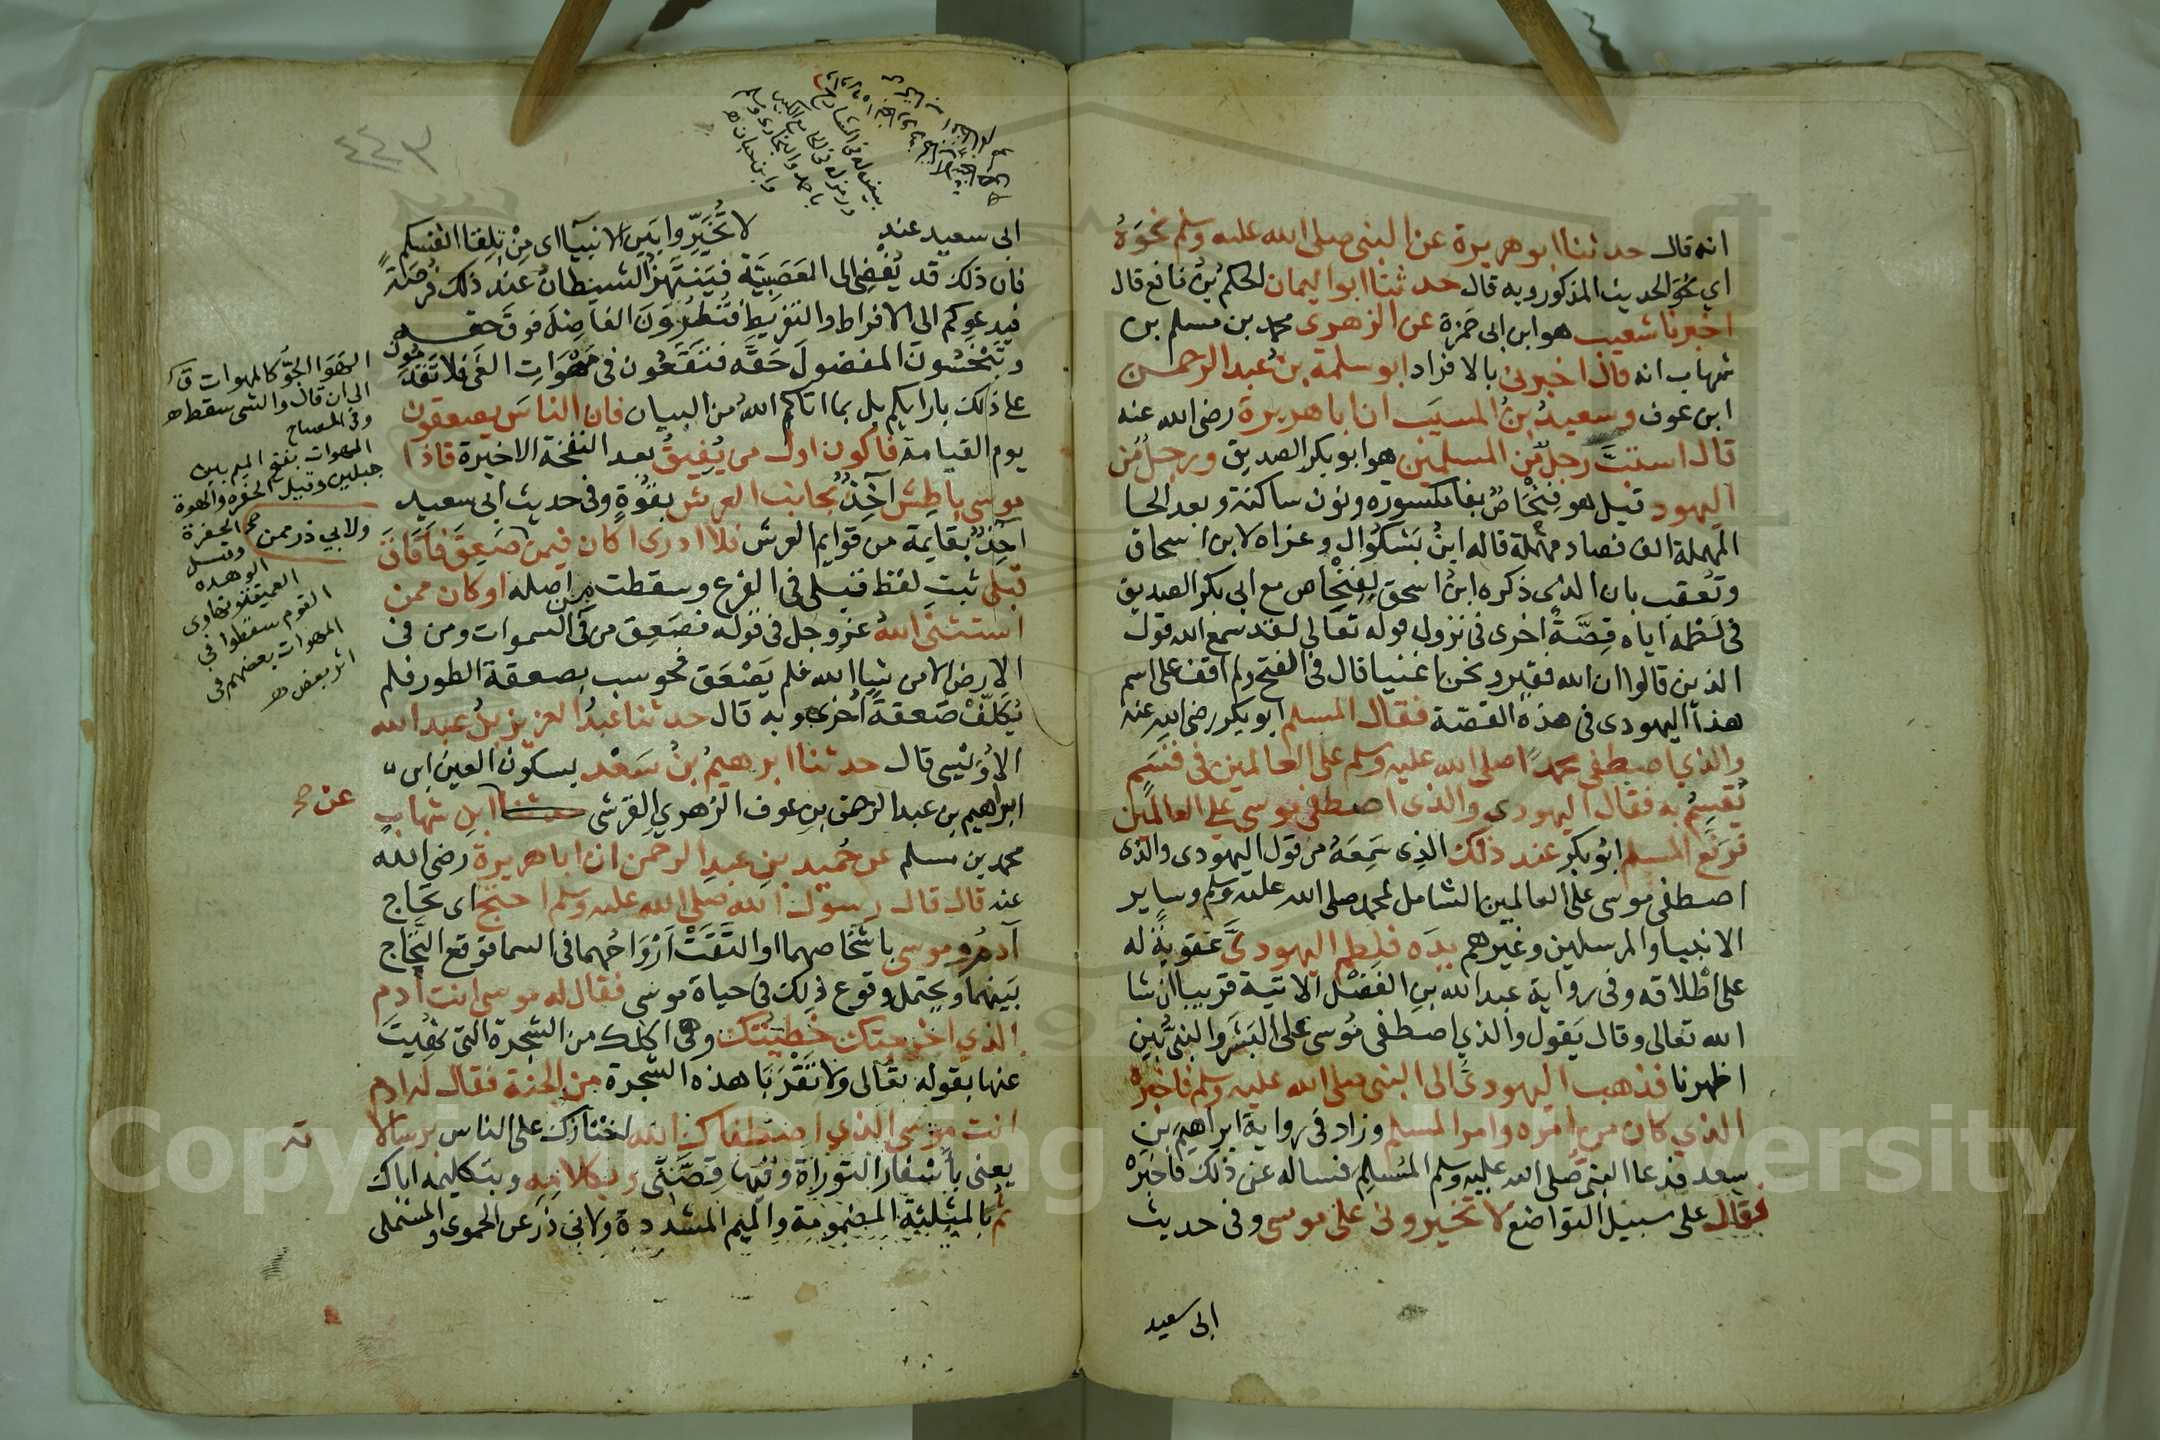 انه قال حدثنا ابو هريرة عن النبي صلى الله عليه وسلم نحوه
اي نحو الحديث المذكور وبه قال حدثنا ابو اليمان الحكم بن نافع قال
اخبرنا شعيب هو ابن ابي حمزة عن الزهري محمد بن مسلم بن
شهاب انه قال اخبرني بالافراد ابو سلمة بن عبد الرحمن
ابن عوف وسعيد بن المسيب ان ابا هريرة رضي الله عنه
قال استب رجل من المسلمين هو ابو بكر الصديق ورجل من
اليهود قيل هو فنحاص بفا مكسورة ونون ساكنة وبعد الحا
المهملة الف فصاد مهملة قاله ابن بشكوال وعزاه لابن اسحاق
وتعقب بان الذي ذكره ابن اسحق لفنحاص مع ابي بكر الصديق
في لطمه اياه قصة اخرى في نزول قوله تعالى لقد سمع الله قول
الذين قالوا ان الله فقير ونحن اغنيا قال في الفتح ولم اقف على اسم
هذا اليهودي في هذه القصة فقال المسلم ابو بكر رضي الله عنه
والذي اصطفى محمدا صلى الله عليه وسلم على العالمين في قسم
يقسم به فقال اليهودي والذي اصطفى موسى على العالمين
فرفع المسلم ابو بكر عند ذلك الذي سمعه من قول اليهودي والذي
اصطفى موسى على العالمين الشامل لمحمد صلى الله عليه وسلم وساير
الانبيا والمرسلين وغيرهم يده فلطم اليهودي عقوبة له
على اطلاقه وفي رواية عبد الله بن الفضل الاتية قريبا ان شا
الله تعالى وقال يقول والذي اصطفى موسى على البشر والنبي بين
اظهرنا فذهب اليهودي الى النبي صلى الله عليه وسلم فاخبره
الذي كان من امره وامر المسلم وزاد في رواية ابراهيم بن
سعد فدعا النبي صلى الله عليه وسلم المسلم فساله عن ذلك فاخبره
فقال على سبيل التواضع لا تخيروني على موسى وفي حديث
ابي سعيد
ابي سعيد عند لا تخيروا بين الانبيا اي من تلقا انفسكم
فان ذلك قد يفضي الى العصبية فينتهز الشيطان عند ذلك فرصة
فيدعوكم الى الافراط والتفريط فتطرون الفاضل فوق حقه
وتبخسون المفضول حقه فتقعون في مهوات الغي فلا تقدمون
على ذلك بارايكم بل بما اتاكم الله من البيان فان الناس يصعقون
يوم القيامة فاكون اول من يفيق بعد النفخة الاخيرة فاذا
موسى باطش آخذ بجانب العرش بقوة وفي حديث ابي سعيد
آخذ بقايمة من قوايم العرش فلا ادري اكان فيمن صعق فافاق
قبلي ثبت لفظ قبلي في الفرع وسقطت من اصله او كان ممن
استثنى الله عز وجل في قوله فصعق من في السموات ومن في
الارض الا من شا الله فلم يصعق فحوسب بصعقة الطور فلم
يكلف صعقة اخرى وبه قال حدثنا عبد العزيز بن عبد الله
الاويسي قال حدثنا ابرهيم بن سعد بسكون العين ابن
ابراهيم بن عبد الرحمن بن عوف الزهري القرشي ابن شهاب
محمد بن مسلم عن حميد بن عبد الرحمن ان ابا هريرة رضي الله
عنه قال قال رسول الله صلى الله عليه وسلم احتج اي تحاج
آدم وموسى باشخاصهما او التقت ارواحهما في السما فوقع التحاج
بينهما ويحتمل وقوع ذلك في حياة موسى فقال له موسى انت آدم
الذي اخرجتك خطيئتك وهي اكلك من الشجرة التي نهيت
عنها بقوله تعالى ولا تقربا هذه الشجرة من الجنة فقال له ادم
انت موسى الذي اصطفاك الله اختارك على الناس برسالا
ته
يعني باسفار التوراة وبكلامه وبتكليمه اياك
ثم بالمثلثة المضمومة والميم المشددة ولابي ذر عن الحموي والمستملي
الى ان قال والشي سقط
وفي المصباح
المهوات بفتح الميم بين
جبلين وقيل الحفرة والهوة
الحفرة وقيل
الوهدة
العميقة وتهاوى
القوم سقطوا في
المهوات بعضهم في
اثر بعض
ولابي ذر ممن
عن صح
٤٤٣
Copyright © King Saud University